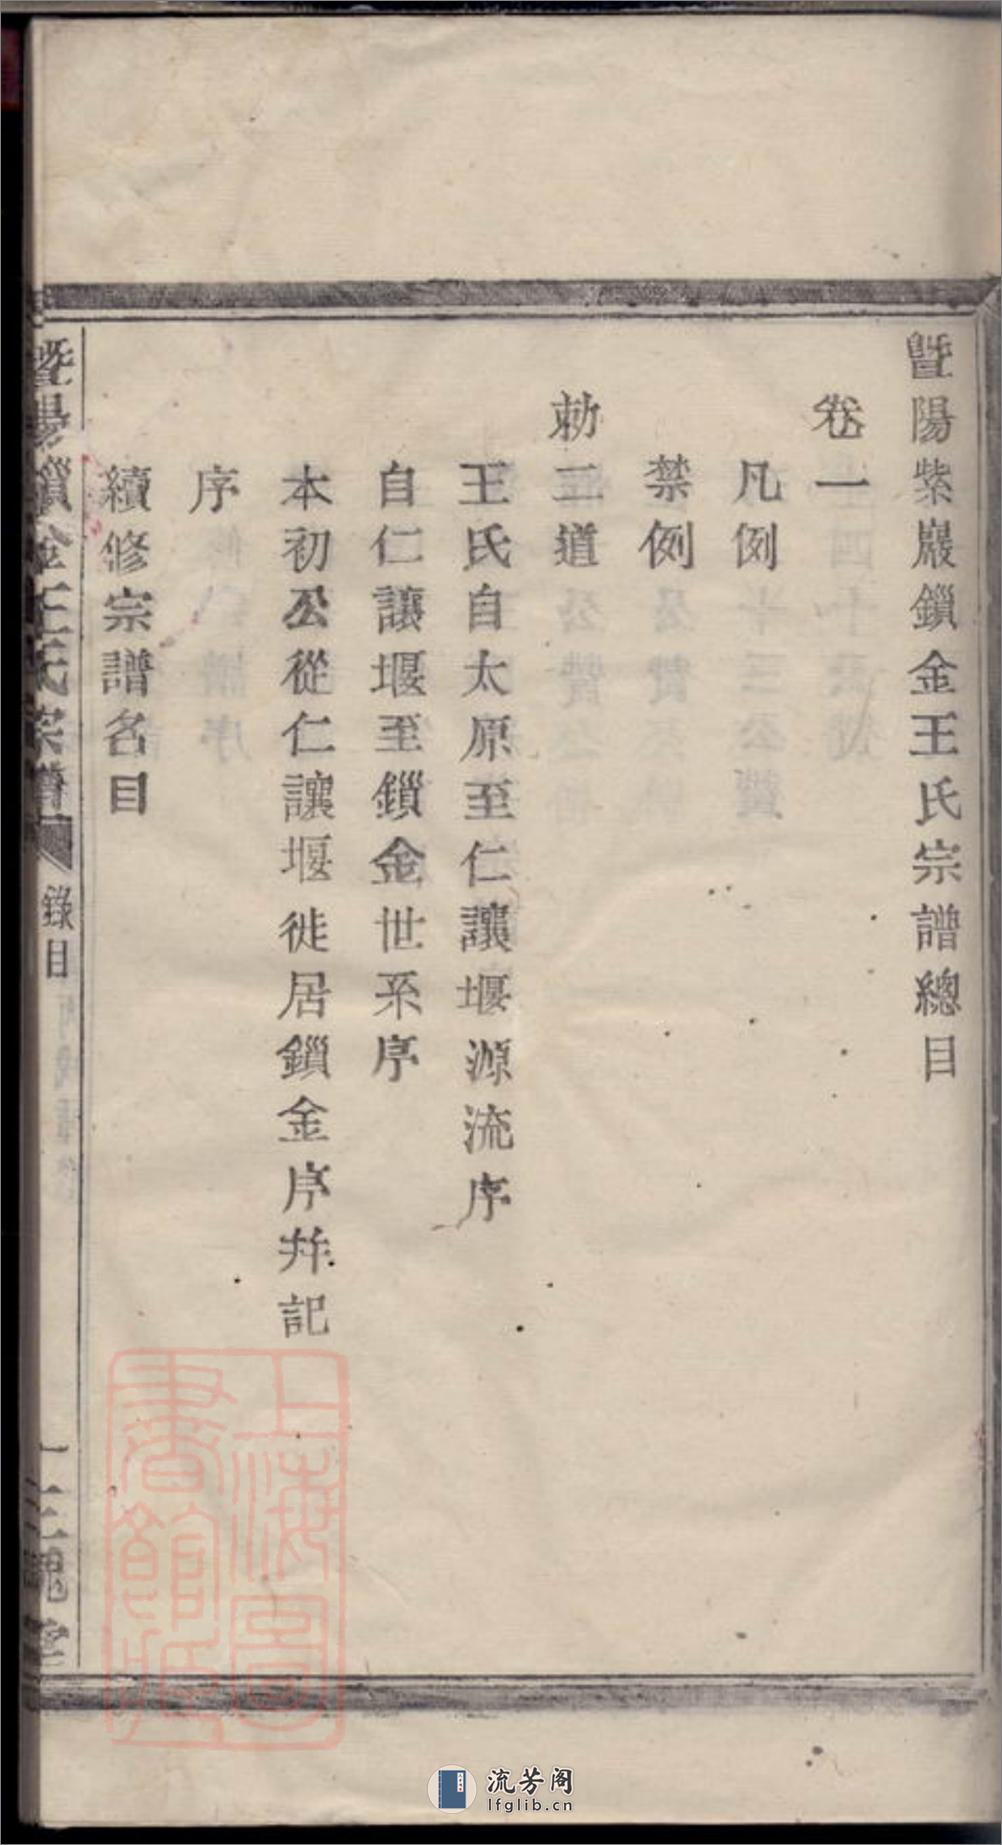 暨陽紫巖鎖金王氏宗譜總目
卷一
凡例
禁例
勅二道
王氏自太原至仁讓堰源流序
自仁讓堰至鎖金世系序
本初公從仁讓堰徙居鎖金序并記
序
續修宗譜名目
暨陽鎖金王氏宗譜
錄目
一
三槐堂
上海圖書館藏
流芳阁
lfglib.cn